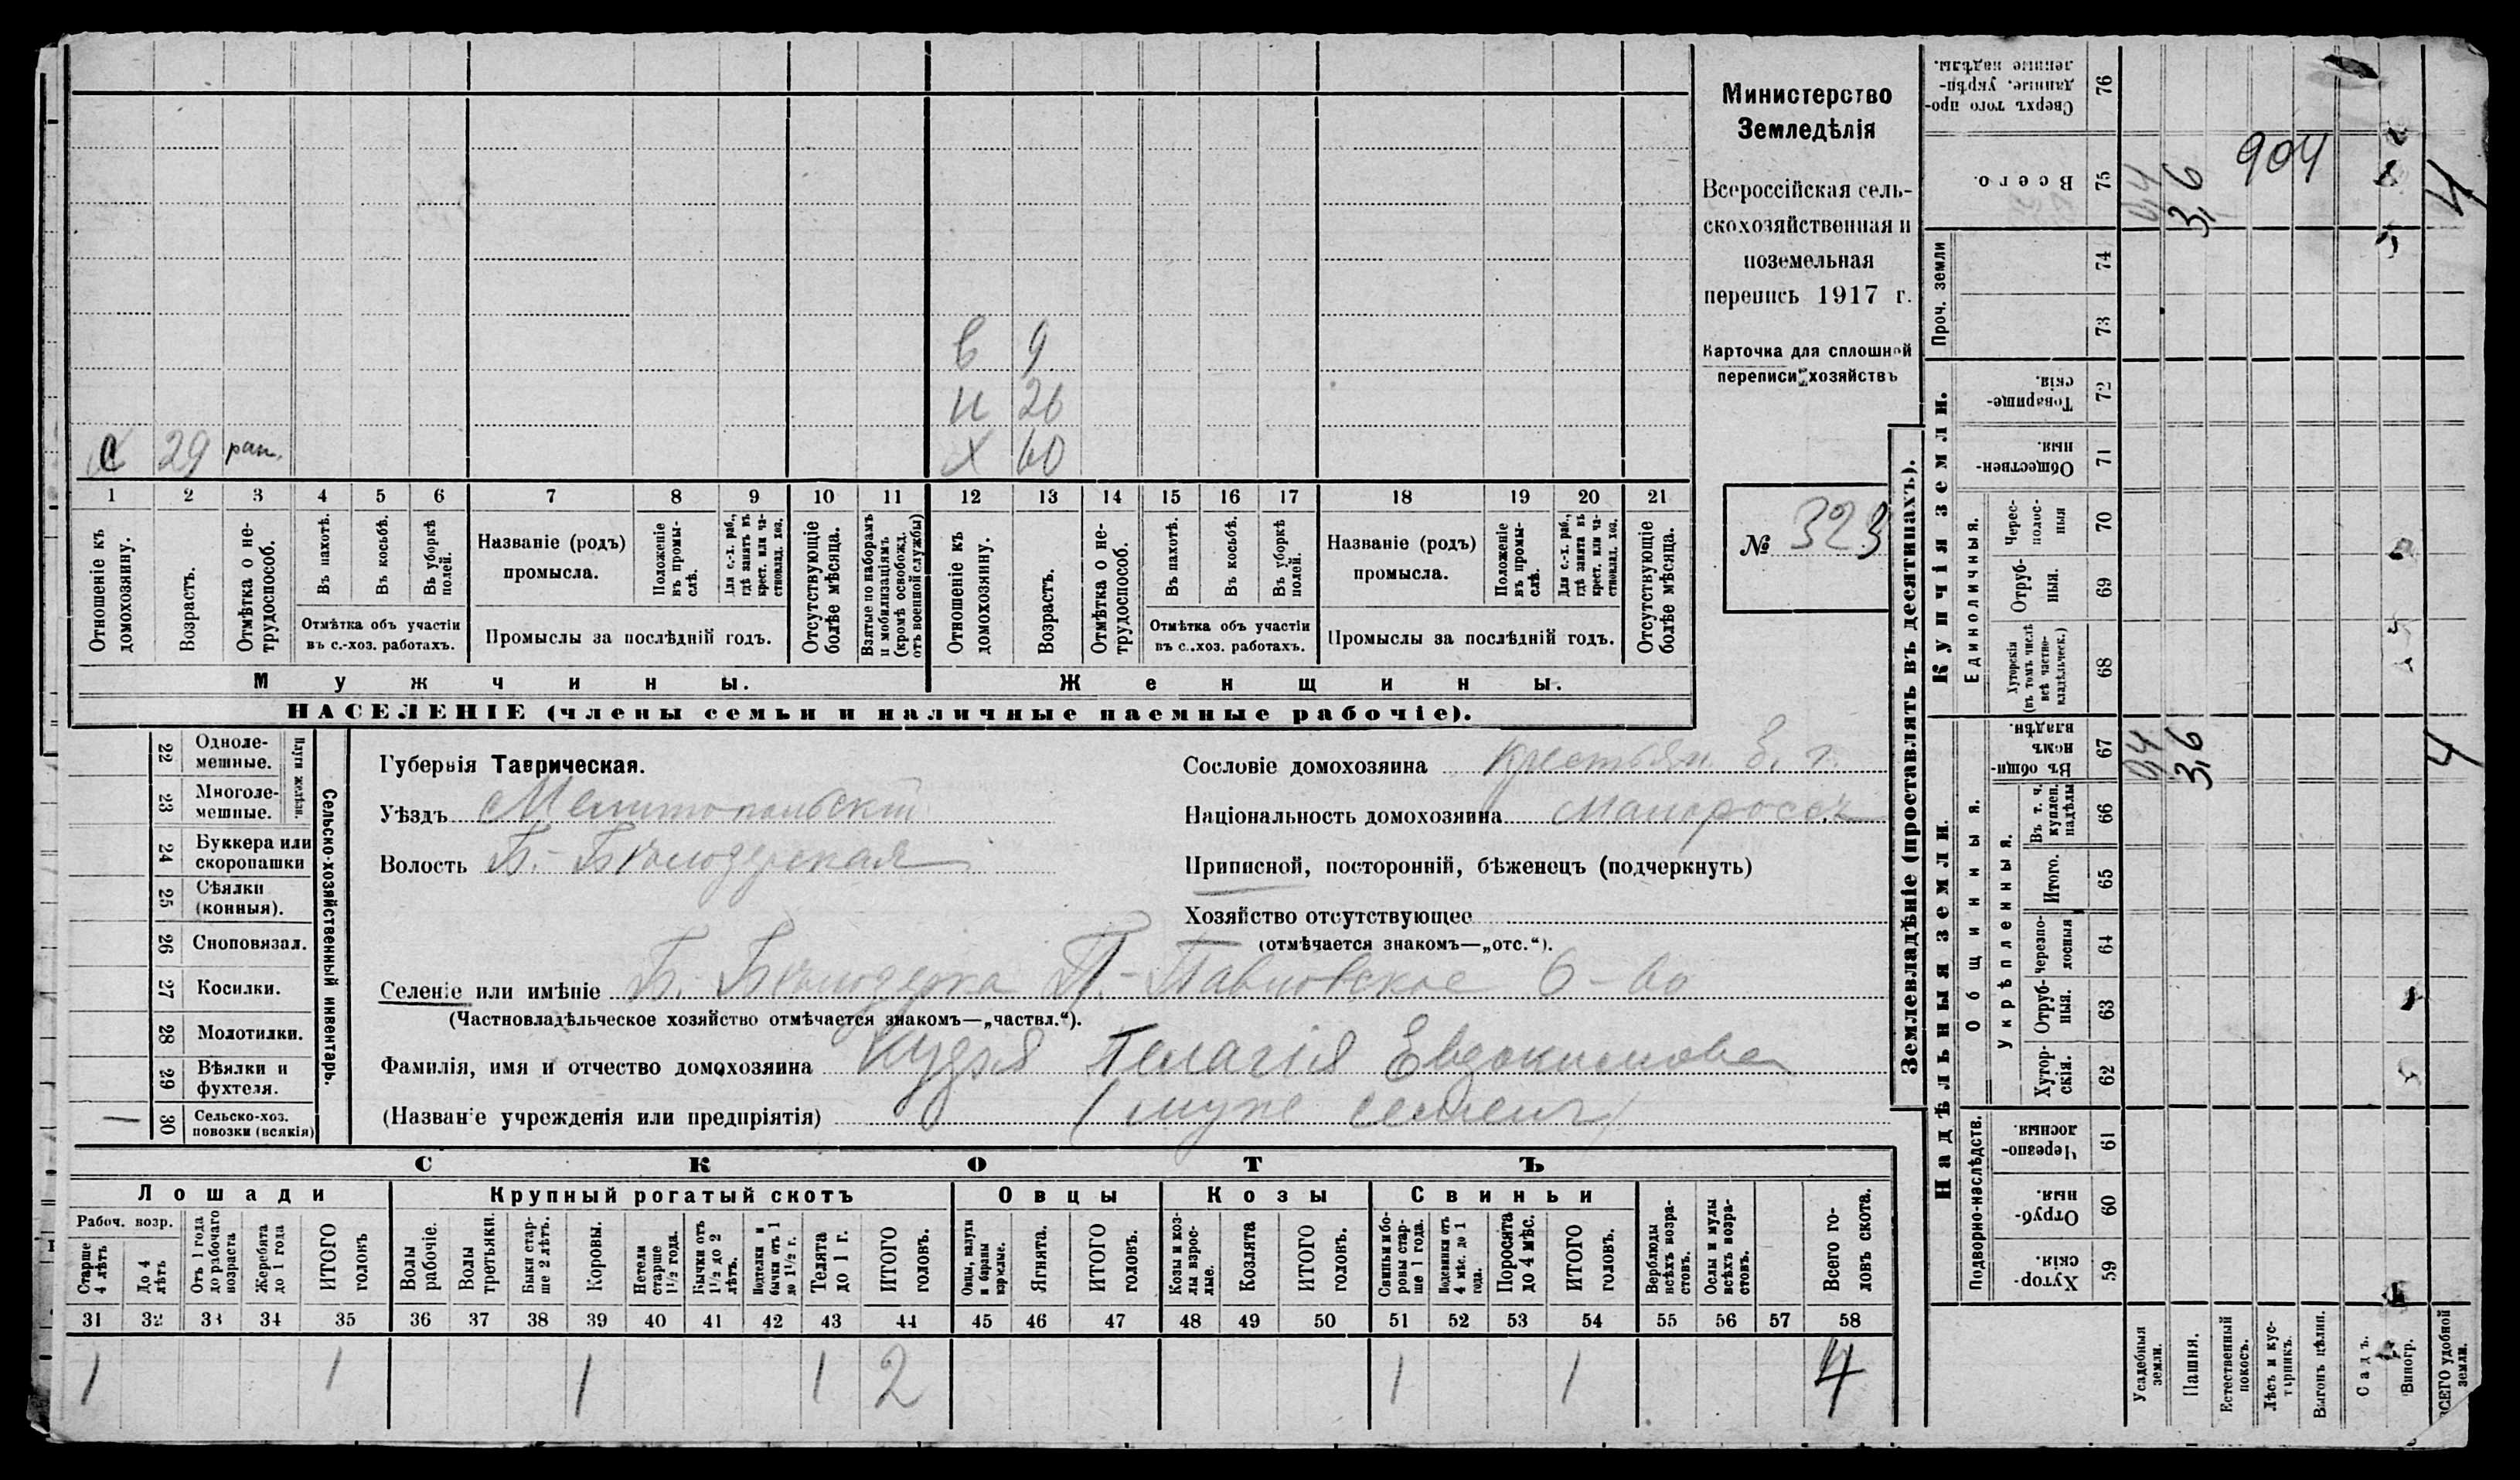 в 9
н 26
с 29 ран. х 60
1 2 3 4 5 6 7 8 9 10 11 12 13 14 15 16 17 18 19 20 21
Отношеніе къ домохозяину.
Возрастъ.
Отмѣтка о нетрудоспособ.
Въ пахотѣ.
Въ косьбѣ.
Въ уборкѣ полей.
Отмѣтка объ участіи
въ с.-хоз. работахъ.
Названіе (родъ)
промысла.
Положеніе въ промыслѣ.
Для с.-х. раб., гдѣ занятъ въ крест. или частновлад. хоз.
Промыслы за послѣдній годъ.
Отсутствующіе болѣе мѣсяца.
Взятые по наборамъ и мобилизаціямъ (кромѣ освобожд. отъ военной службы)
Отношеніе къ домохозяину.
Возрастъ.
Отмѣтка о нетрудоспособ.
Въ пахотѣ.
Въ косьбѣ.
Въ уборкѣ полей.
Отмѣтка объ участіи
въ с..хоз. работахъ.
Названіе (родъ)
промысла.
Положеніе въ промыслѣ.
Для с.-х. раб., гдѣ занята въ крест. или частновлад. хоз.
Промыслы за послѣдній годъ.
Отсутствующіе болѣе мѣсяца.
Мужчины. Женщины.
НАСЕЛЕНІЕ (члены семьи и наличные наемные рабочіе).
Министерство
Земледѣлія
Всероссійская сель-
скохозяйственная и
поземельная
перепись 1917 г.
Карточка для сплошной
переписи хозяйствъ
№ 323
22 Одноле-
мешные.
23 Многоле-
мешные.
Плуги желѣзн.
24 Буккера или
скоропашки
25 Сѣялки
(конныя).
26 Сноповязал.
27 Косилки.
28 Молотилки.
29 Вѣялки и
фухтеля.
— 30 Сельско-хоз.
повозки (всякія)
Сельско-хозяйственный инвентарь.
Губернія Таврическая.
Уѣздъ Мелитопольскій
Волость Б.-Бѣлозерская
Сословіе домохозяина крестьян.
Національность домохозяина малороссъ
Приписной, посторонній, бѣженецъ (подчеркнуть)
Хозяйство отсутствующее
(отмѣчается знакомъ—„отс.“).
Селеніе или имѣніе Б. Бѣлозерка П.-Павловское о-во
(Частновладѣльческое хозяйство отмѣчается знакомъ—„частвл.“).
Фамилія, имя и отчество домохозяина Кудря Пелагія Евдокимова
(Назван'е учрежденія или предпріятія) (муже Семенъ)
СКОТЪ
Лошади Крупный рогатый скотъ Овцы Козы Свиньи
Рабоч. возр.
Старше 4 лѣтъ
До 4 лѣтъ
Отъ 1 года до рабочаго возраста
Жеребята до 1 года
ИТОГО головъ
Волы рабочіе.
Волы третьяки.
Быки старше 2 лѣтъ.
Коровы.
Нетели старше 1½ года.
Бычки отъ 1½ до 2 лѣтъ.
Подтелки и бычки отъ 1 до 1½ г.
Телята до 1 г.
ИТОГО головъ.
Овцы, валухи и бараны взрослые.
Ягнята.
ИТОГО головъ.
Козы и козлы взрослые.
Козлята
ИТОГО головъ.
Свиньи и боровы старше 1 года.
Подсвинки отъ 4 мѣс. до 1 года.
Поросята до 4 мѣс.
ИТОГО головъ.
Верблюды всѣхъ возрастовъ.
Ослы и мулы всѣхъ возрастовъ.
Всего головъ скота.
31 32 33 34 35 36 37 38 39 40 41 42 43 44 45 46 47 48 49 50 51 52 53 54 55 56 57 58
1 1 1 1 2 1 1 4
Землевладѣніе (проставлять въ десятинахъ).
Надѣльныя земли.
Купчія земли.
Проч. земли
Подворно-наслѣдств.
Общинныя.
Укрѣпленныя.
Единоличныя.
Сверхъ того проданные, укрѣпленные надѣлы. 76
Всего. 75 0,4 3,6 904 4
74
73
Товарищескія. 72
Общественныя. 71
Чересполосныя 70
Отрубныя. 69
Хуторскія (въ томъ числѣ всѣ частновладѣльческ.) 68
Въ общинномъ владѣн. 67 0,4 3,6 4
Въ т. ч. куплен. надѣлы 66
Итого. 65
Черезполосныя 64
Отрубныя. 63
Хуторскія. 62
Черезполосныя. 61
Отрубныя. 60
Хуторскія. 59
Усадебныя земли.
Пашня.
Естественный покосъ.
Лѣсъ и кустарникъ.
Выгонъ цѣлин.
Садъ.
Виногр.
ВСЕГО удобной земли.